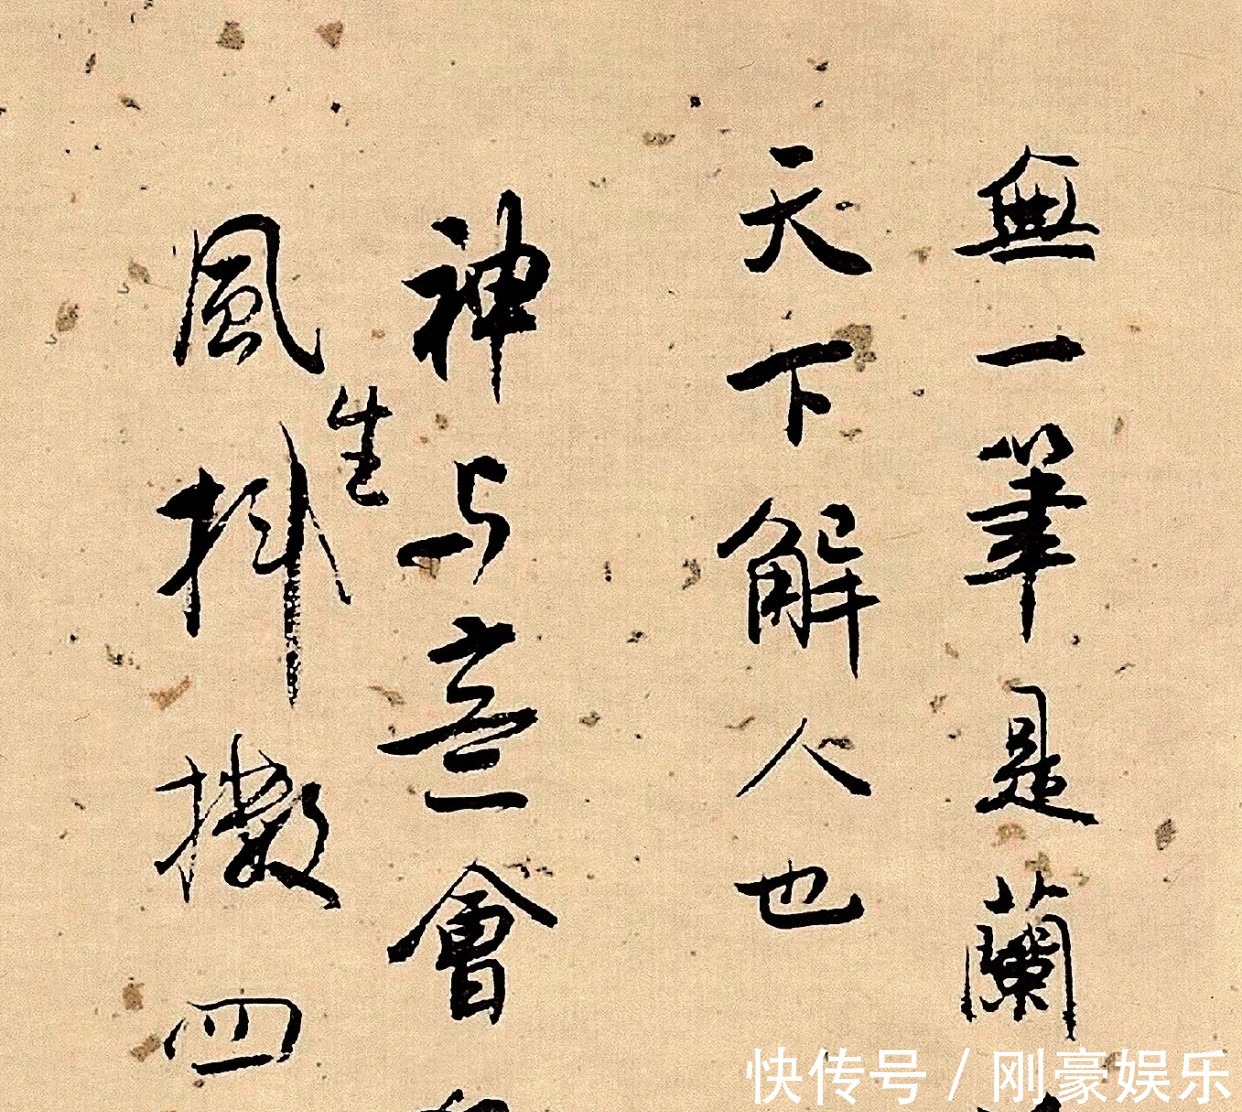 無一筆是蘭
天下解人也
神与意會
風生抖擻四
快传号 / 刚豪娱乐